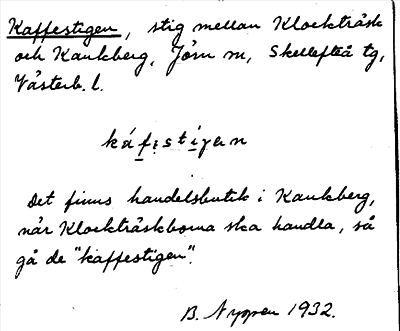 Kaffestigen, stig mellan Klockträsk
och Kankberg, Jörn sn, Skellefteå tg,
Västerb. l.
káfestígen
Det finns handelsbutik i Kankberg,
när Klockträskborna ska handla, så
gå de "kaffestigen".
B. Nygren 1932.